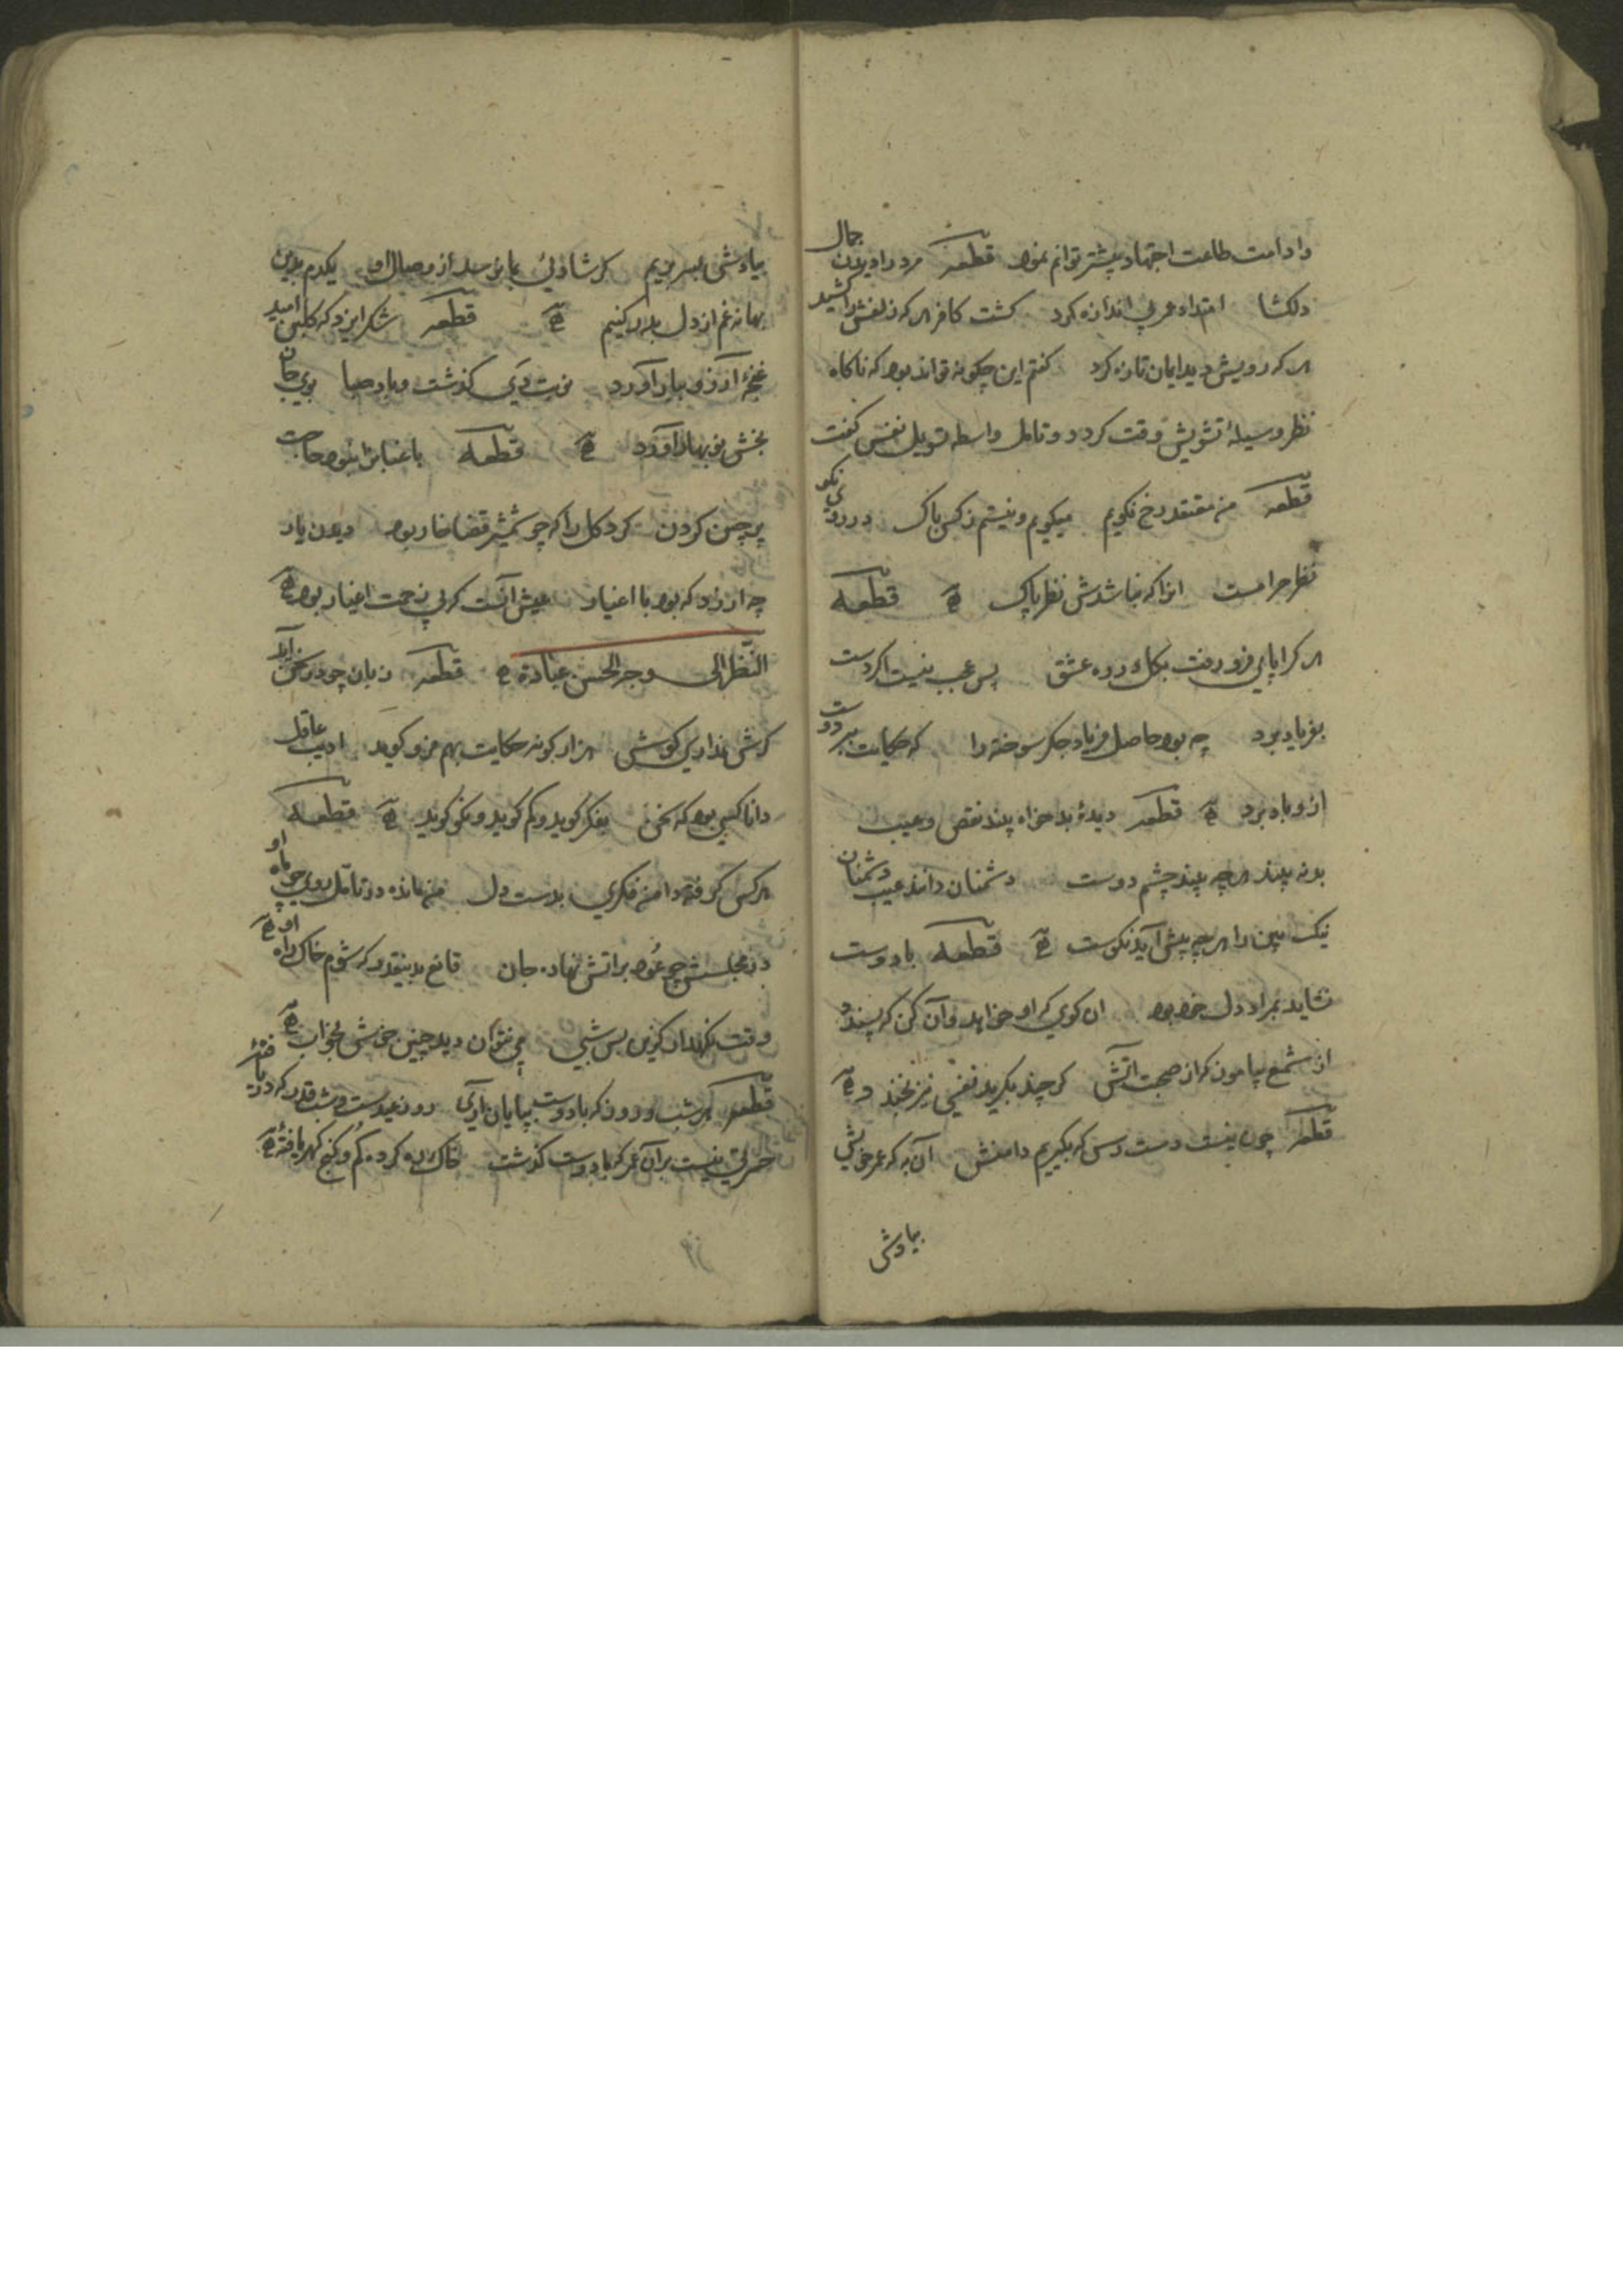 وادامت طاعت اجتهاد بیشتر توانم نمود قطعه مرد را دیدن جمال
دلکشا امتداد عمر بی اندازه کرد کشت کافر هر که زلفش را کشید
هر که رویش دید ایمان تازه کرد کفتم این چکونه تواند بود که ناکاه
نظر وسیلهٔ تشویش وقت کردد و تامل واسطه نفس کفت
قطعه من معتقد رخ نکویم میکویم و نیستم ز کس باک در روی نکو
نظر حرامست انرا که نباشدش نظر پاک قطعه
هر کرا پای فرو رفت بکل در ره عشق پس عجب نیست اکر دست
بفریاد برد چه بود حاصل فریاد جکر سوخته را که حکایت بر دوست
ازو باد برد قطعه دیدهٔ بدخواه بیند نقص و عیب
بد نه بیند هرچه بیند چشم دوست دشمنان دانند عیب دشمنان
نیک بین را هرچه پیش آید نکوست قطعه با دوست
نشاید بمراد دل خود بود ان کوی که او خواهد و آن کن که پسندد
از شمع بیاموز که از صحبت آتش کر چند بکرید نفسی نیز بخندد
قطعه چون نیست دست رس که بکیریم دامنش آن به که عمر خویش
بیادش
بیادش بسر بریم کر شادئی بما نرسد از وصال او یکدم بدین
بهانه غم از دل بدر کنیم قطعه شکر ایزد که کلبن امید
غنچهٔ آرزو ببار آورد نوبت دی کذشت و باد صبا بوی جان
بخش نوبهار آورد قطعه باغبانرا نبود حاجت
پرچین کردن کرد کل را که چو شمشیر قضا خار بود دیدن یار
چه ارزد که بود با اغیار عیش آنست که بی زحمت اغیار بود
النظر الی وجه الحسن عبادة قطعه زبان چو در سخن آید
کرش نداری کوش هزار کونه حکایت بهم فرو کوید ادیب عاقل
دانا کسی بود که سخن بفکر کوید و کم کوید و نکو کوید قطعه
هر کس کرفته دامن فکری بدست دل من مانده در تامل روی چو ماه او
در مجلسش چو عود بر اتش نهاده جان قانع بدینقدر که شوم خاک راه او
وقت نکهدار کزین پس شبی می نتوان دید چنین خوش بخواب
قطعه هر شب و روز که با دوست بپایان آری روز عیدست و شب قدر که دریافتهٔ
حسرتی نیست بر آن عمر که با دوست کذشت خاک ره کرده کم و کنج کهر یافتهٔ